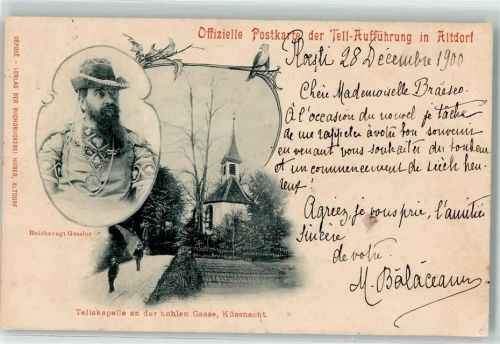 Offizielle Postkarte der Tell-Aufführung in Altdorf
DÉPOSÉ - VERLAG DER BUCHDRUCKEREI HUBER, ALTDORF
28 Décembre 1900
Chère Mademoiselle Brăescu
À l'occasion du nouvel je tâche
de me rappeler à votre bon souvenir
en venant vous souhaiter du bonheur
et un commencement de siècle heu-
reux!
Agréez, je vous prie, l'amitié
sincère
de votre
M. Bălăceanu
Reichsvogt Gessler
Tellskapelle an der hohlen Gasse, Küssnacht.